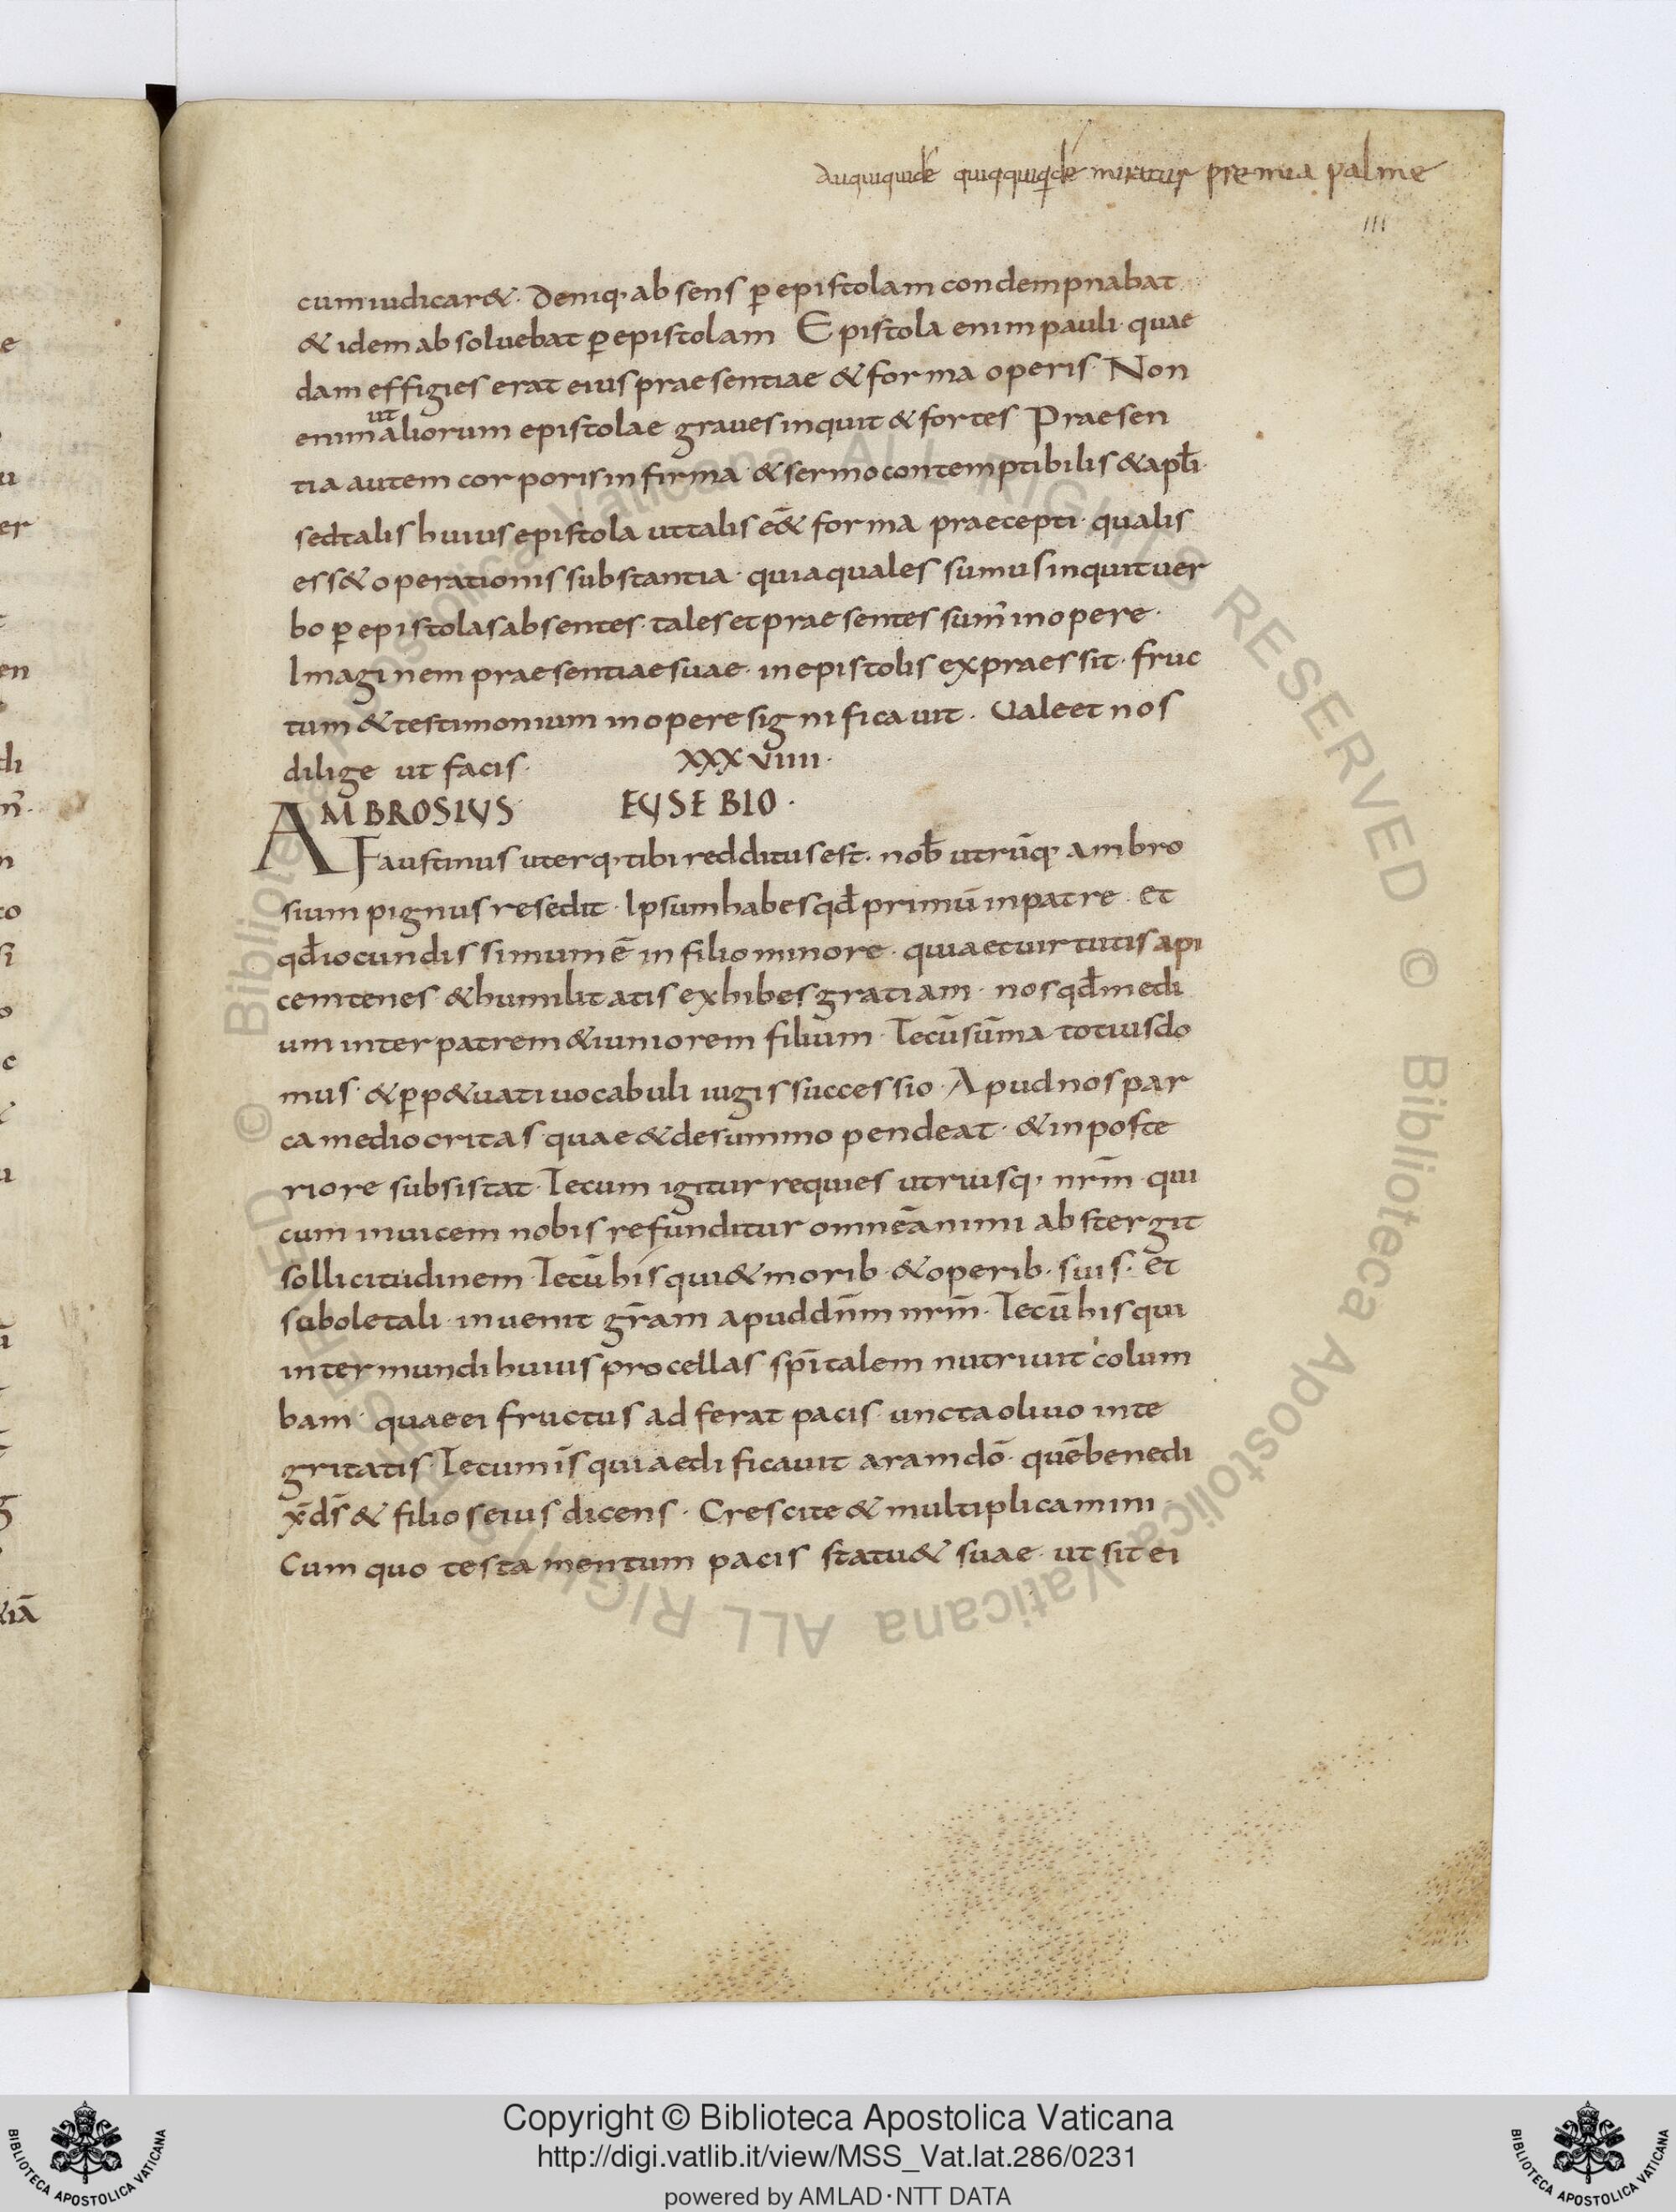 auquiquidē quiqquiqdē miratur premia palme
III
cum iudicar&. Deniq; absens p̲ epistolam condempnabat
& idem absoluebat p̲ epistolam Epistola enim pauli quae
dam effigies erat eius praesentiae & forma operis. Non
ut
enim aliorum epistolae graues inquit & fortes Praesen
tia autem corporis infirma & sermo contemptibilis & apłi
sed talis huius epistola ut talis e&̄ forma praecepti qualis
ess& operationis substantia quia quales sumus inquit uer
bo p̲ epistolas absentes tales et praesentes sum̄ in opere
Imaginem praesentiae suae in epistolis expraessit fruc
tum & testimonium in opere significauit. Vale et nos
dilige ut facis
XXXVIIII
AMBROSIUS EUSEBIO
Faustinus uterq; tibi redditus est. nob̄ utrūq; ambro
sium pignus resedit. Ipsum habes qd̄ primū in patre et
qd̄ iocundissimum ē in filio minore quia et uirtutis api
cem tenes & humilitatis exhibes gratiam nos qd̄ medi
um inter patrem & iuniorem filium Tecū sūma totius do
mus & p̲p&uati uocabuli iugis successio Apud nos par
ca mediocritas quae & de summo pendeat & in poste
riore subsistat Tecum igitur requies utriusq; nrm̄ qui
cum inuicem nobis refunditur omnē animi abstergit
sollicitudinem Tecū his qui & morib. & operib. suis et
subole tali inuenit gr̄am apud dn̄m nrm̄ Tecū his qui
inter mundi huius procellas sp̄italem nutriuit colum
bam quae ei fructus adferat pacis uncta oliuo inte
gritatis Tecum is qui aedificauit aram dō quē benedi
x̄ ds̄ & filios eius dicens Crescite & multiplicamini
Cum quo testamentum pacis statu& suae ut sit ei
© Biblioteca Apostolica Vaticana ALL RIGHTS RESERVED © Biblioteca Apostolica Vaticana ALL RIGHTS RESERVED
BIBLIOTECA APOSTOLICA VATICANA
Copyright © Biblioteca Apostolica Vaticana
http://digi.vatlib.it/view/MSS_Vat.lat.286/0231
powered by AMLAD·NTT DATA
BIBLIOTECA APOSTOLICA VATICANA